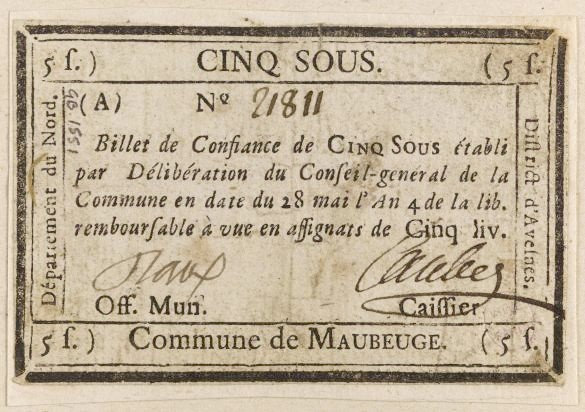 5 ſ. ) CINQ SOUS. ( 5 ſ.
Département du Nord.
98 1551
(A) Nº 21811
Billet de Confiance de CINQ SOUS établi
par Délibération du Conſeil-general de la
Commune en date du 28 mai l'An 4 de la lib.
rembourſable à vue en aſſignats de Cinq liv.
Off. Mun. Caiſſier
Diſtrict d'Aveſnes.
5 ſ. ) Commune de MAUBEUGE. ( 5 ſ.